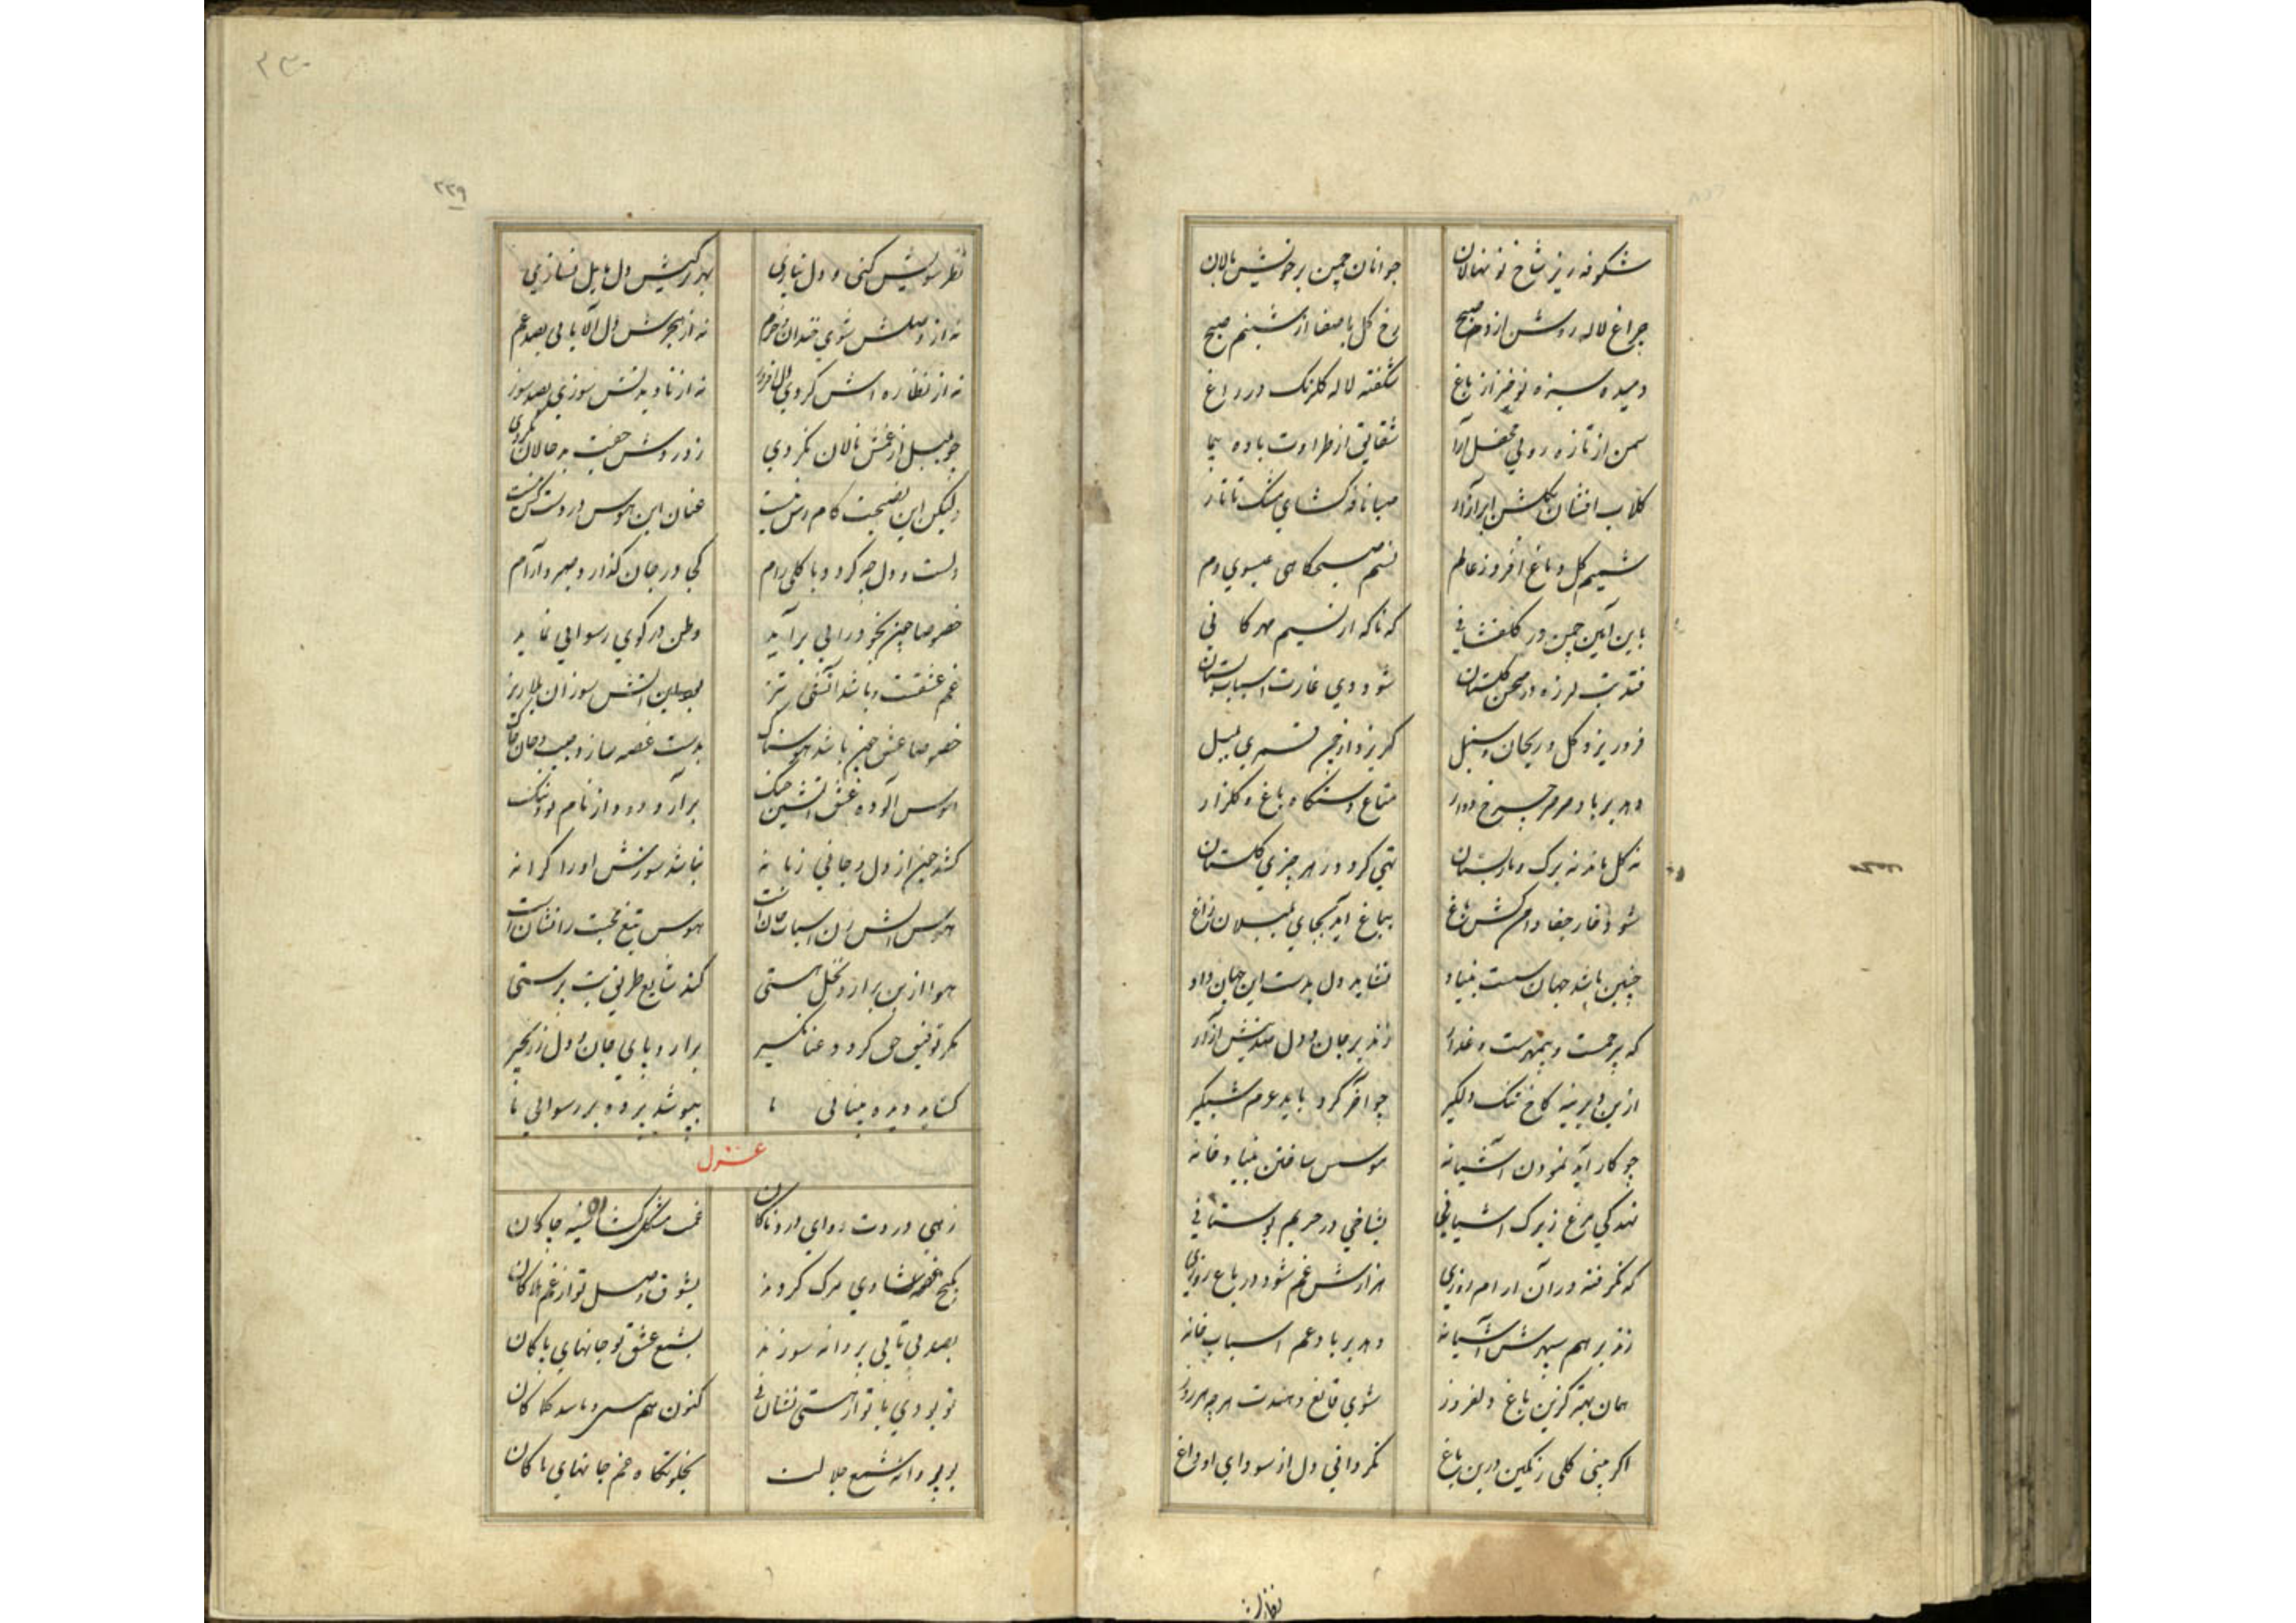 شکوفه ریز شاخ نونهالان جوانان چمن بر خویش بالان
چراغ لاله روشن از دم صبح رخ کل با صفا از شبنم صبح
دمیده سبزه نوخیز از باغ شکفته لاله کلرنک در راغ
سمن از تازه رویی محفل آرا شقایق از طراوت باده پیما
کلاب افشان بکلشن ابر آزار صبا نافه کشای مشک تاتار
شمیم کل دماغ افروز عالم نسیم صبحکاهی عیسوی دم
باین آیین چمن در کلفشانی که ناکه از نسیم مهرکانی
فتد بت لرزه در صحن کلستان شود دی غارت اسباب بستان
فرو ریزد کل و ریحان و سنبل کریزد از چمن قمری بلبل
دهد بر باد صرصر چرخ دوار متاع دستکاه باغ و کلزار
نه کل ماند نه برک و بار بستان تهی کردد ز هر چیزی کلستان
شود خار جفا دامن کش باغ بباغ آید بجای بلبلان زاغ
چنین باشد جهان سست بنیاد نشاید دل بدست این جهان داد
که بیرحمست و بیمهرست و غدار زند بر جان و دل صد نیش آزار
ازین دیرینه کاخ تنک دلکیر چو آخر کرد باید عزم شبکیر
چو کار آید نمودن آشیانه هوس ساختن بنیاد خانه
نهد کی مرغ زیرک آشیانی بشاخی در حریم بوستانی
که نکرفته در آن آرام روزی هزارش غم شود در باغ روزی
زند بر هم سپهرش آشیانه دهد بر باد غم اسباب خانه
همان بهتر کزین باغ دلفروز شوی قانع دهندت هر چه هر روز
اکر بینی کلی رنکین درین باغ نکردانی دل از سودای او داغ
۲۲۹
نظر سویش کنی و دل نبازی بهر رکیش دل مایل نسازی
نه از وصلش شوی خندان و خرم نه از هجرش دل آلایی بصد غم
نه از نظاره اش کردی دل افروز نه از نادیدنش سوزی بصد سوز
چو بلبل از غمش نالان نکردی ز درد وش حالان نکردی
ولیکن این نصیحت کام دست عنان این هوس در دست کس نیست
دلست و دل چه کردد با کلی رام کجا در جان کذارد صبر و آرام
خصوصا چون بخودرایی برآید وطن در کوی رسوایی نماید
غم عشقت و باشد آتشی تیز
خصوصا عشق چون باشد هوسناک بدست غصه سازد جیب جان چاک
هوس آلوده عشق آتشین جنک برآرد دود از نام و ننک
کشد چون از دل و جانی زبانه نباشد سوزنش او را کرانه
هوس آتش زن اسباب جان است هوس تیغ محبت را نشان است
هوا از بن برآرد نخل هستی کند شایع طریق بت پرستی
مکر توفیق حق کردد عنانکیر برآرد پای جان و دل ز زنجیر
کشاید دیده بینایی ما بپوشد پرده بر رسوایی ما
غزل
زهی دردت دوای دردناکان غمت مشکل کشای سینه چاکان
بکنج غصه شادی مرک کردند بشوق وصل تو از غم هلاکان
بصد بی تابی پروانه سوزند بشمع عشق تو جانهای پاکان
تو بودی با تو از هستی نشانی کنون هم
بود پروانه شمع جلالت بخلوتکاه خم جانهای پاکان